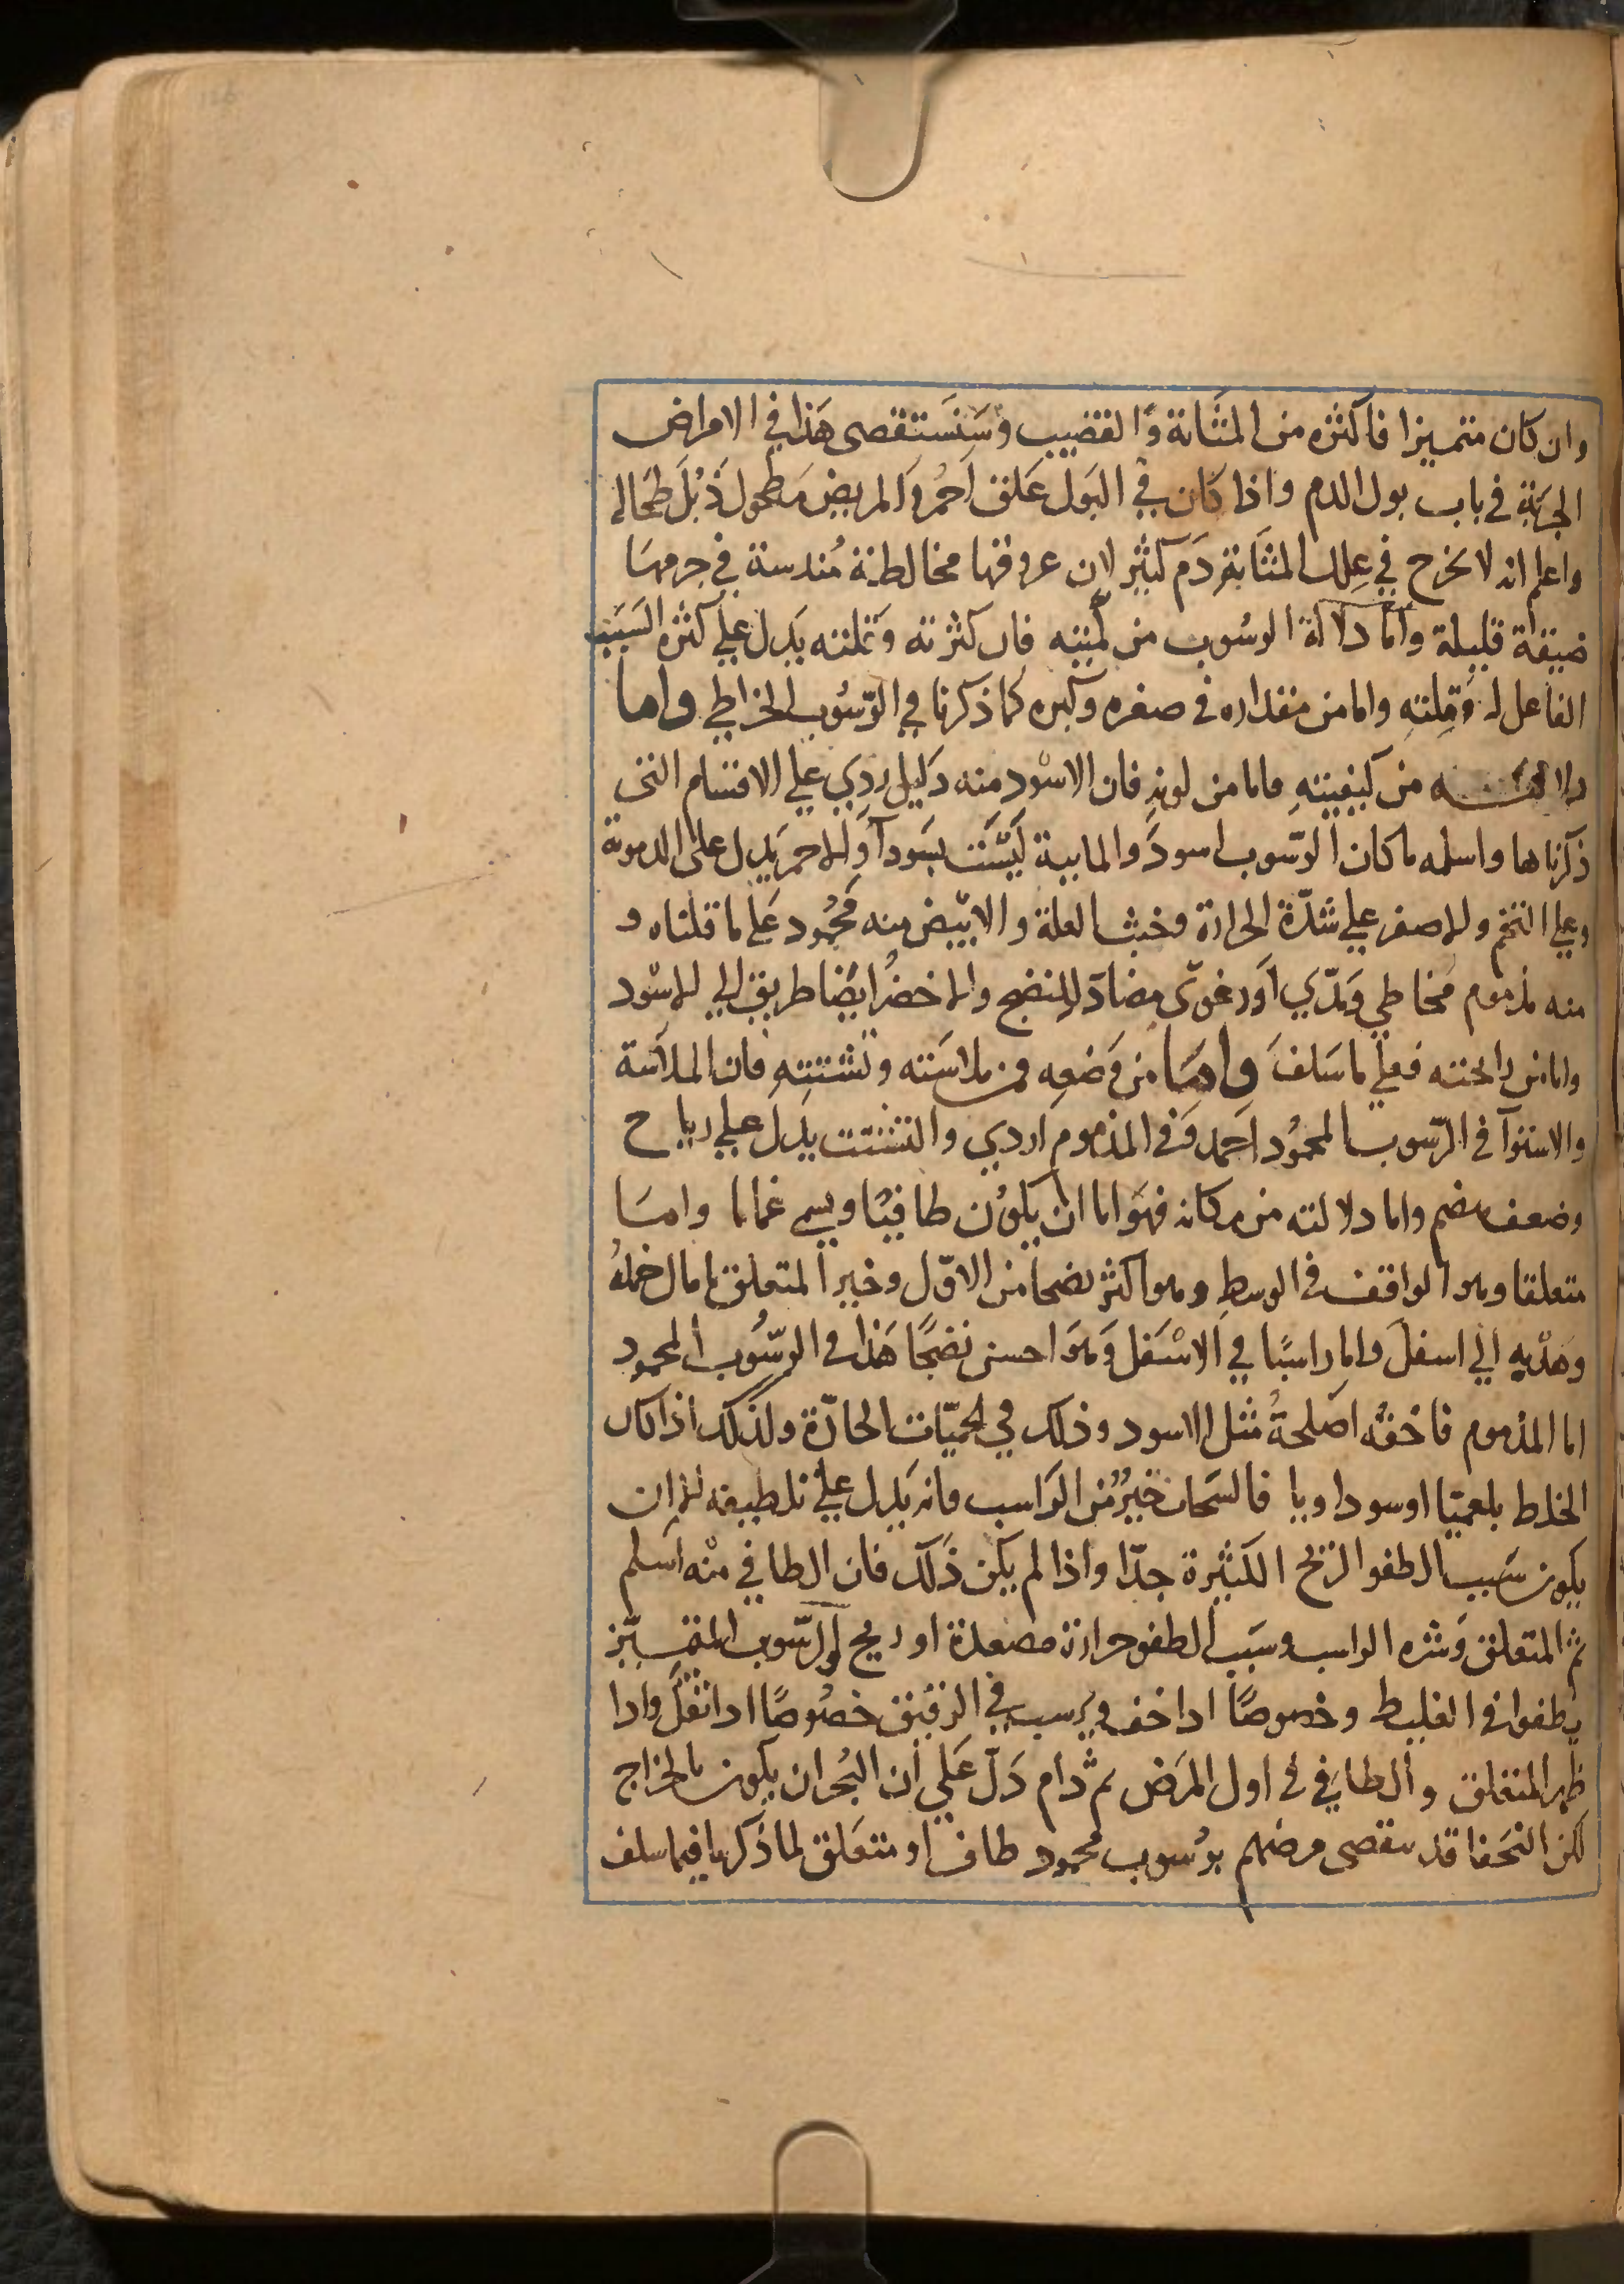 وان كان متميزا فاكثره من المثانة والقضيب وسنستقصى هذا في الامراض
الجزية في باب بول الدم واذا كان في البول علق احمر والمريض مطحول ذبل طحاله
واعلم انه لا يخرج في علل المثانة دم كثير لان عروقها مخالطة مندسة في جرمها
ضيقة قليلة واما دلالة الرسوب من كميته فان كثرته وقلته يدل على كثره السبب
الفاعل له وقلته واما من مقداره في صغره وكبره كما ذكرنا في الرسوب الخراطي واما
دلالته من كيفيته فاما من لونه فان الاسود منه دليل ردي علي الاقسام التي
ذكرناها واسلمه ما كان الرسوب اسود والمايية ليست بسودآ والاحمر يدل على الدموية
وعلي التخم والاصفر علي شدة الحرارة وخبث العلة والابيض منه محمود على ما قلناه و
منه مذموم مخاطي ومدي او رغوى مضاد للنضج والاخضر ايضا طريق الي الاسود
واما من رايحته فعلي ما سلف واما من وضعه فمن ملاسته وتشتته فان الملاسة
والاستوآ في الرسوب المحمود احمد وفي المذموم اردي والتشتت يدل علي رياح
وضعف هضم واما دلالته من مكانه فهو اما ان يكون طافيا ويسمى غماما واما
متعلقا وهو الواقف في الوسط وهو اكثر نضجا من الاول وخير المتعلق ما مال خمله
وهدبه الي اسفل واما راسبا في الاسفل وهو احسن نضجا هذا في الرسوب المحمود
اما المذموم فاخفه اصلحه مثل الاسود وذلك في الحميات الحادة ولذلك اذا كان
الخلط بلغميا او سوداويا فالسحاب خير من الراسب فانه يدل علي تلطيفه الا ان
يكون سبب الطفو الريح الكثيرة جدا واذا لم يكن ذلك فان الطافي منه اسلم
ثم المتعلق وشره الراسب وسبب الطفو حرارة مصعدة او ريح والرسوب المتميز
يطفوا في الغليظ وخصوصا اذا خف ويرسب في الرقيق خصوصا اذا ثقل واذا
ظهر المتعلق والطافي في اول المرض ثم دام دل علي ان البحران يكون بالخراج
لكن النحفا قد ينقضى مرضهم برسوب محمود طاف او متعلق لما ذكرنا فيما سلف